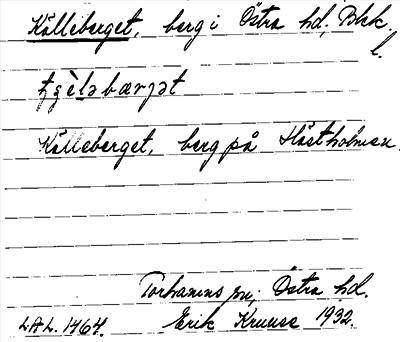 Källeberget, berg i Östra hd, Blek.
l.
tʂèləbærjət
Källeberget, berg på Hästholmen.
Torhamns sn, Östra hd.
LAL. 1464. Erik Kruuse 1932.